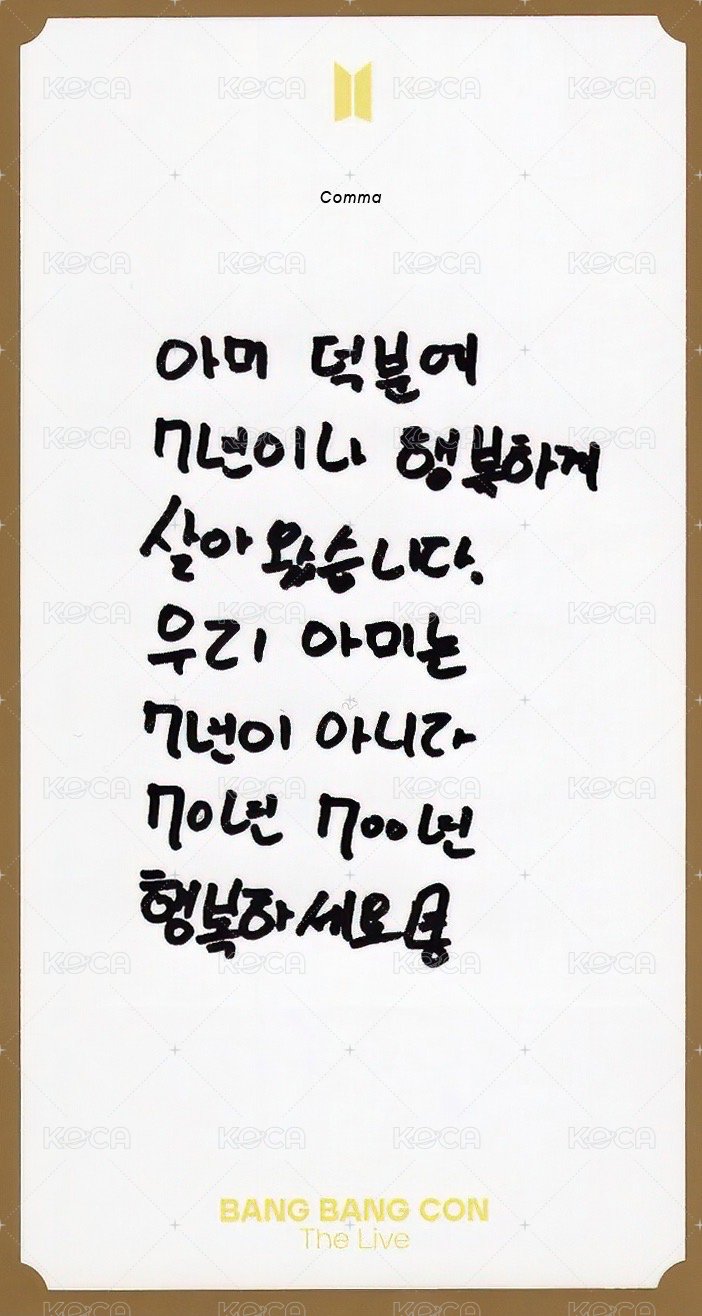 Comma
아미 덕분에
7년이나 행복하게
살아왔습니다.
우리 아미는
7년이 아니라
70년 700년
행복하세요
BANG BANG CON
The Live
KOCA